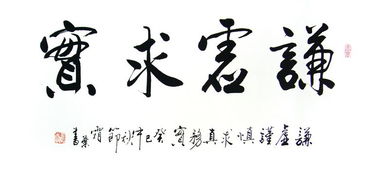 謙虛求實
謙虛謹慎求真務實癸巳仲秋節宵榮書